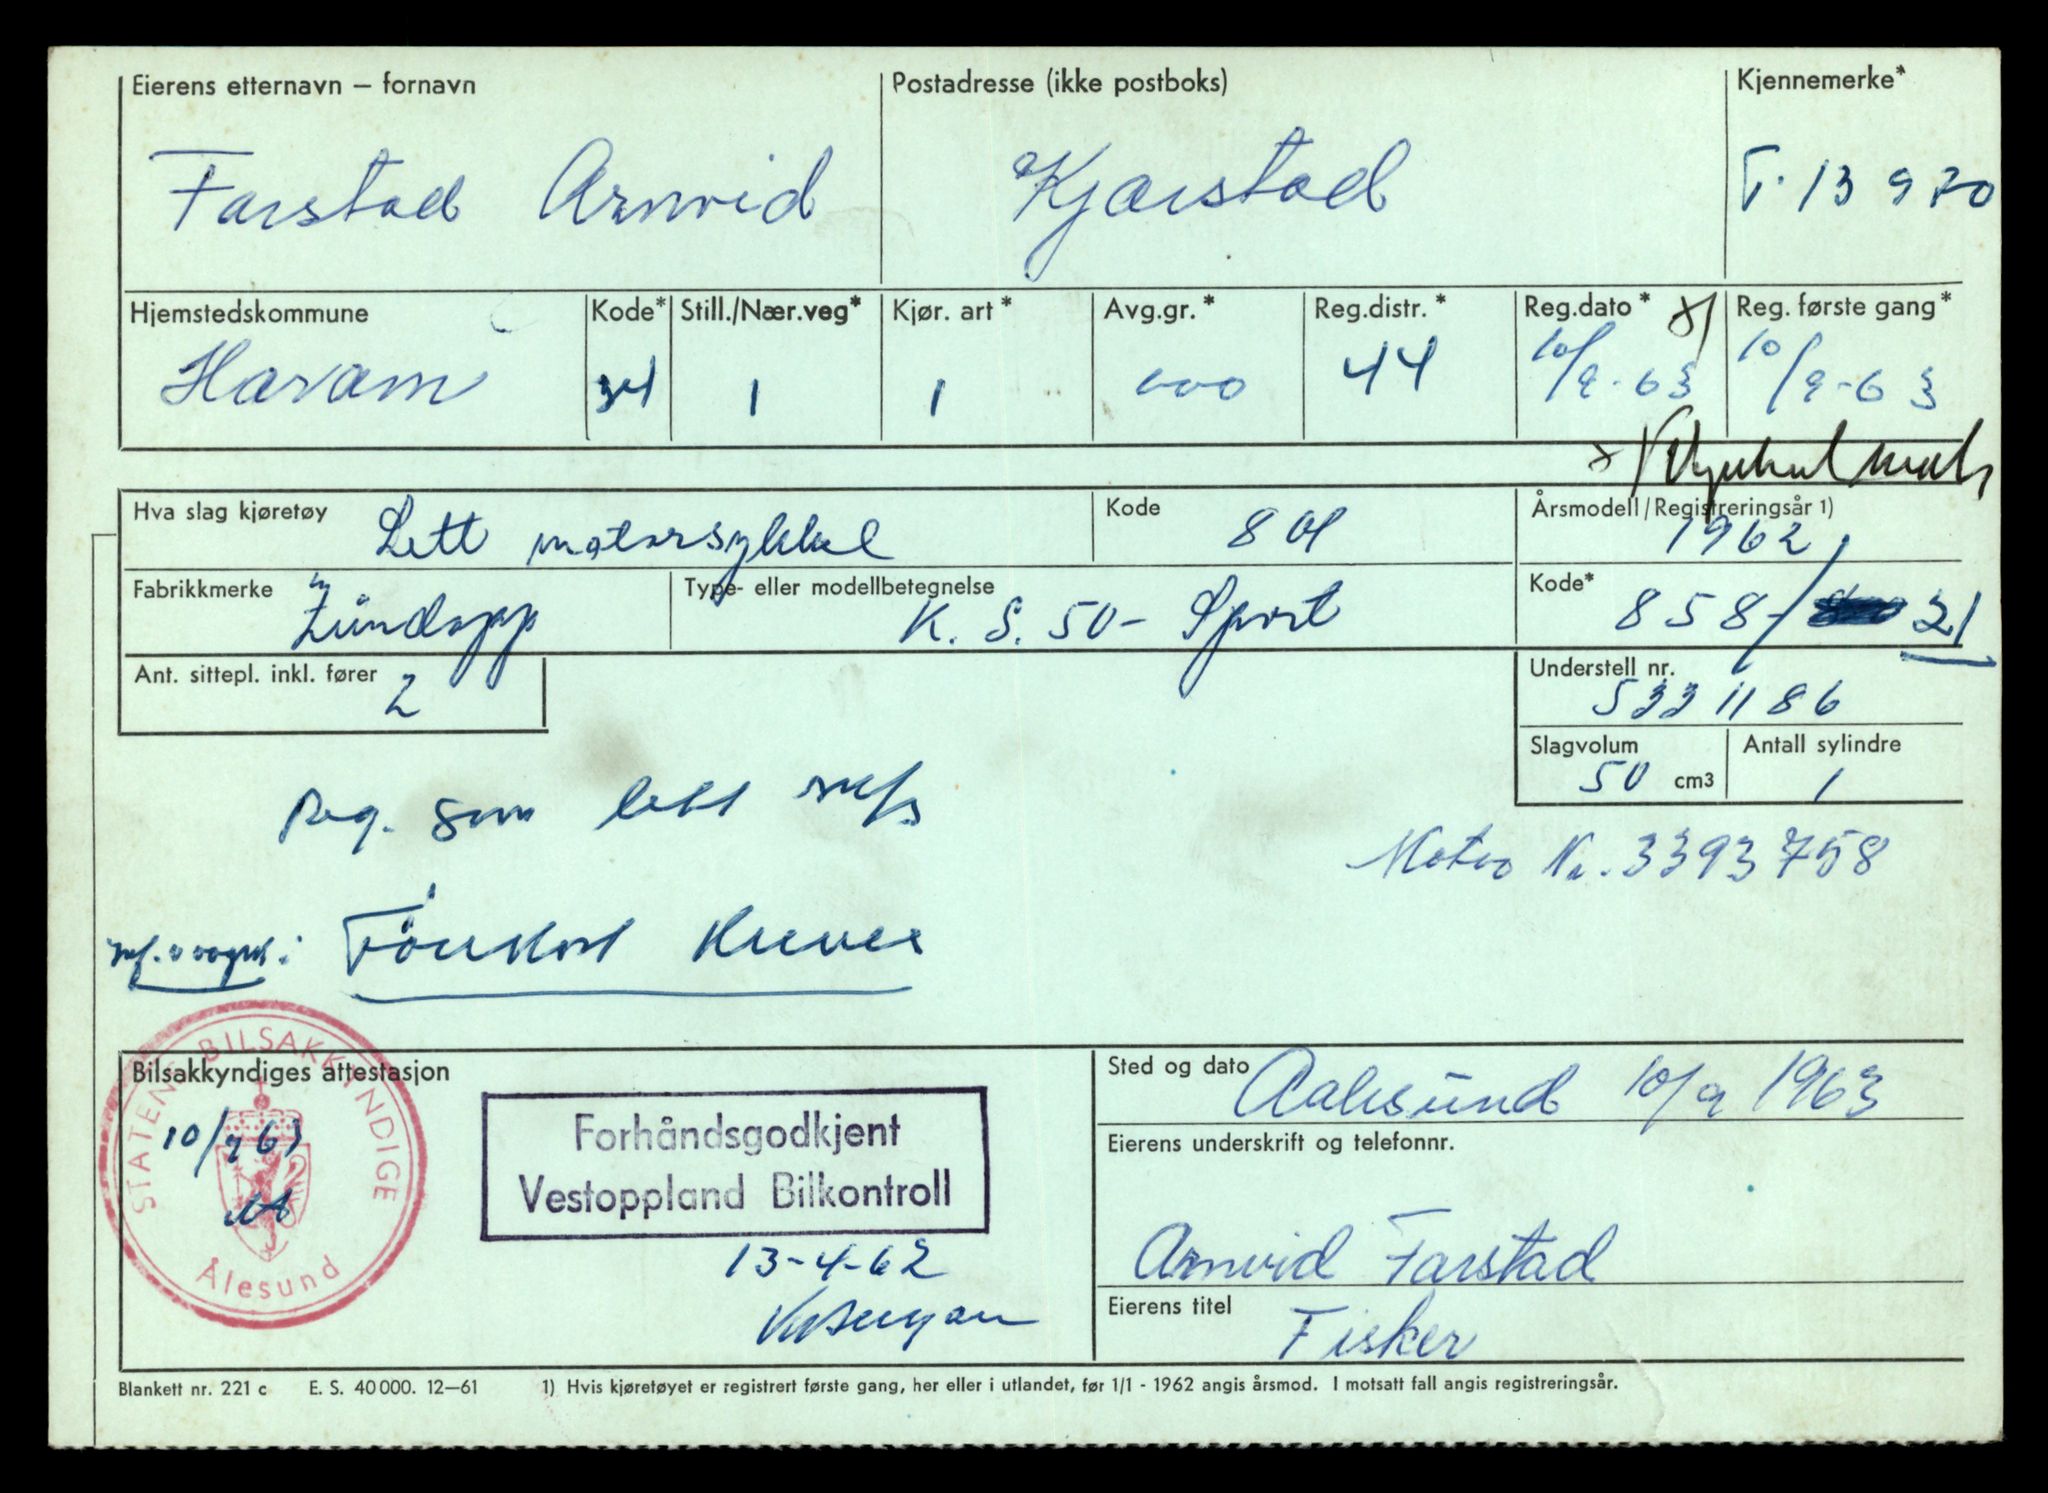 Eierens etternavn – fornavn
Farstad Arnvid
Postadresse (ikke postboks)
Kjerstad
Kjennemerke*
T-13970
Hjemstedskommune
Haram
Kode*
34
Still./Nær.veg*
1
Kjør. art*
1
Avg.gr.*
000
Reg.distr.*
44
Reg.dato*
10/9-63
Reg. første gang*
10/9-63
Hva slag kjøretøy
Lett motorsykkel
Kode
801
Årsmodell/Registreringsår 1)
1962
Fabrikkmerke
Zündapp
Type- eller modellbetegnelse
K. S. 50 - Sport
Kode*
858/ 21
Ant. sittepl. inkl. fører
2
Understell nr.
5331186
Slagvolum
50 cm3
Antall sylindre
1
Reg. som lett
Motor Nr. 3393758
Bilsakkyndiges attestasjon
STATENS BILSAKKYNDIGE
Ålesund
10/9 63
Forhåndsgodkjent
Vestoppland Bilkontroll
13-4-62
Sted og dato
Aalesund 10/9 1963
Eierens underskrift og telefonnr.
Arnvid Farstad
Eierens titel
Fisker
Blankett nr. 221 c E. S. 40 000. 12–61 1) Hvis kjøretøyet er registrert første gang, her eller i utlandet, før 1/1 - 1962 angis årsmod. I motsatt fall angis registreringsår.